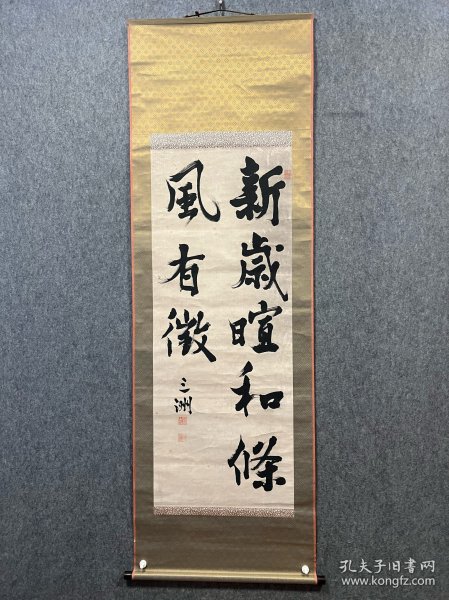 新歳暄和條
風有徵
三洲
孔夫子旧书网
www.kongfz.com